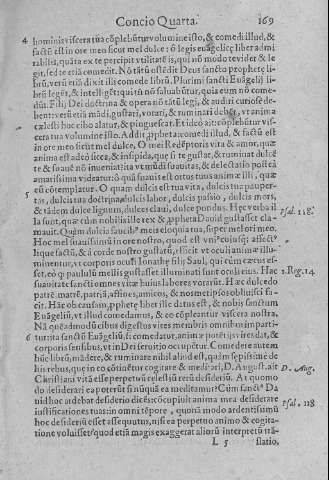 Concio Quarta. 169
4 hominis viscera tua cõplebũtur volumine isto, & comedi illud, &
factũ est in ore meo sicut mel dulce: ũ legis euãgelicę liber admi
rabilis, quãta ex te percipit vtilitatẽ is, qui nõ modo te videt & le
git, sed te etiã comedit. Nõ tãtũ ostẽdit Deus sancto prophetę li
brũ, verũ etiã dixit illi comede librũ. Plurimi sancti Euãgelij li
brũ legẽt, & intelligẽt: qui tñ nõ saluabũtur, quia eum nõ come
dũt. Filij Dei doctrina & opera nõ tãtũ legi, & audiri curiosè de-
bent: verũ etiã mãdi, gustari, vorari, & ruminari debẽt, vt anima
cælesti hac cibo alatur, & pinguescat. Et ideò ait: cõplebũtur vis-
cera tua volumine isto. Addit prophetæ: comedi illud, & factũ est
in ore meo sicut mel dulce. O mei Redẽptoris vita & amor, quæ
anima est adeò sicca, & insipida, quę si te gustat, & ruminat dulcẽ
te & suauẽ nõ inueniat: ita vt mũdi suauitas, & delectatio postea
amarissima videatur: ô quã suauis est ortus tuus animæ illi, quæ
eũ cõtemplatur. O quam dulcis est tua vita, dulcis tua pauper-
5 tas, dulcis tua doctrina, dulcis labor, dulcis passio, dulcis mors,
& tãdem dulce lignum, dulces claui, dulce pondus. Hęc verba il
la sunt, quæ cũm nobilis ille rex & propheta Dauid gustasset cla- Psal. 118.
mauit. Quàm dulcia faucibus meis eloquia tua, super mel ori meo.
Hoc mel suauissimũ in ore nostro, quod est vnicuiusque
lique factũ, & à corde nostro gustatũ, efficit vt oculi animæ illu-
minentur, vt corporis oculi Ionathę filij Saul, qui cùm cæcus es-
set, eò qd paululũ mellis gustasset illuminati sunt oculi eius. Hac 1. Reg. 14.
suauitate sancti omnes vitæ huius labores vorarũt. Hæc dulcedo
patrẽ, matrẽ, patriã, affines, amicos, & nosmet ipsos obliuisci fa-
cit. Hac ob causam, prophetę liber ille datus est, & nobis sanctum
Euãgeliũ, vt illud comedamus, & eo cõpleantur viscera nostra.
Nã quẽadmodũ cibus digestus vites membris omnibus imparti-
6 tur: ita sancti Euãgeliũ, si comedatur, animæ potẽtijs vires dat, &
corporis sensibus, vt in Dei seruitio occupẽtur. Comedere autem
hũc librũ, mãdere, & ruminare nihil aliud est, quàm sępissimè de
his rebus, quę in eo cõtinẽtur cogitare & meditari, D. August. ait D. Aug.
Christiani vitã esse perpetuã cælestiũ rerũ desideriũ. At quomo
do desiderari ea poterũt si nũquã ea meditamur? Cum sanctus Da
uid hoc ardebat desiderio dicẽs: cõcupiuit anima mea desiderare Psal. 118
iustificationes tuas: in omni tẽpore, quonã modo ardentissimũ
hoc desideriũ esset assequutus, nisi ea perpetuo animo & cogita-
tione voluisset? quod etiã magis exaggerat aliorũ interpretũ trã-
L 5 slatio,